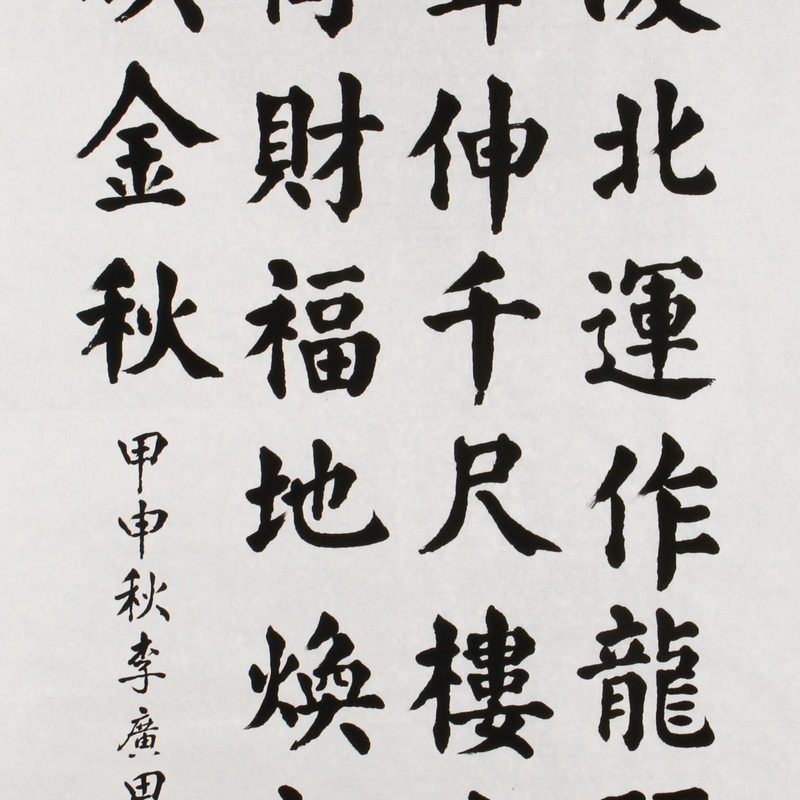 北運作龍
伸千尺樓
財福地煥
金秋
甲申秋李廣